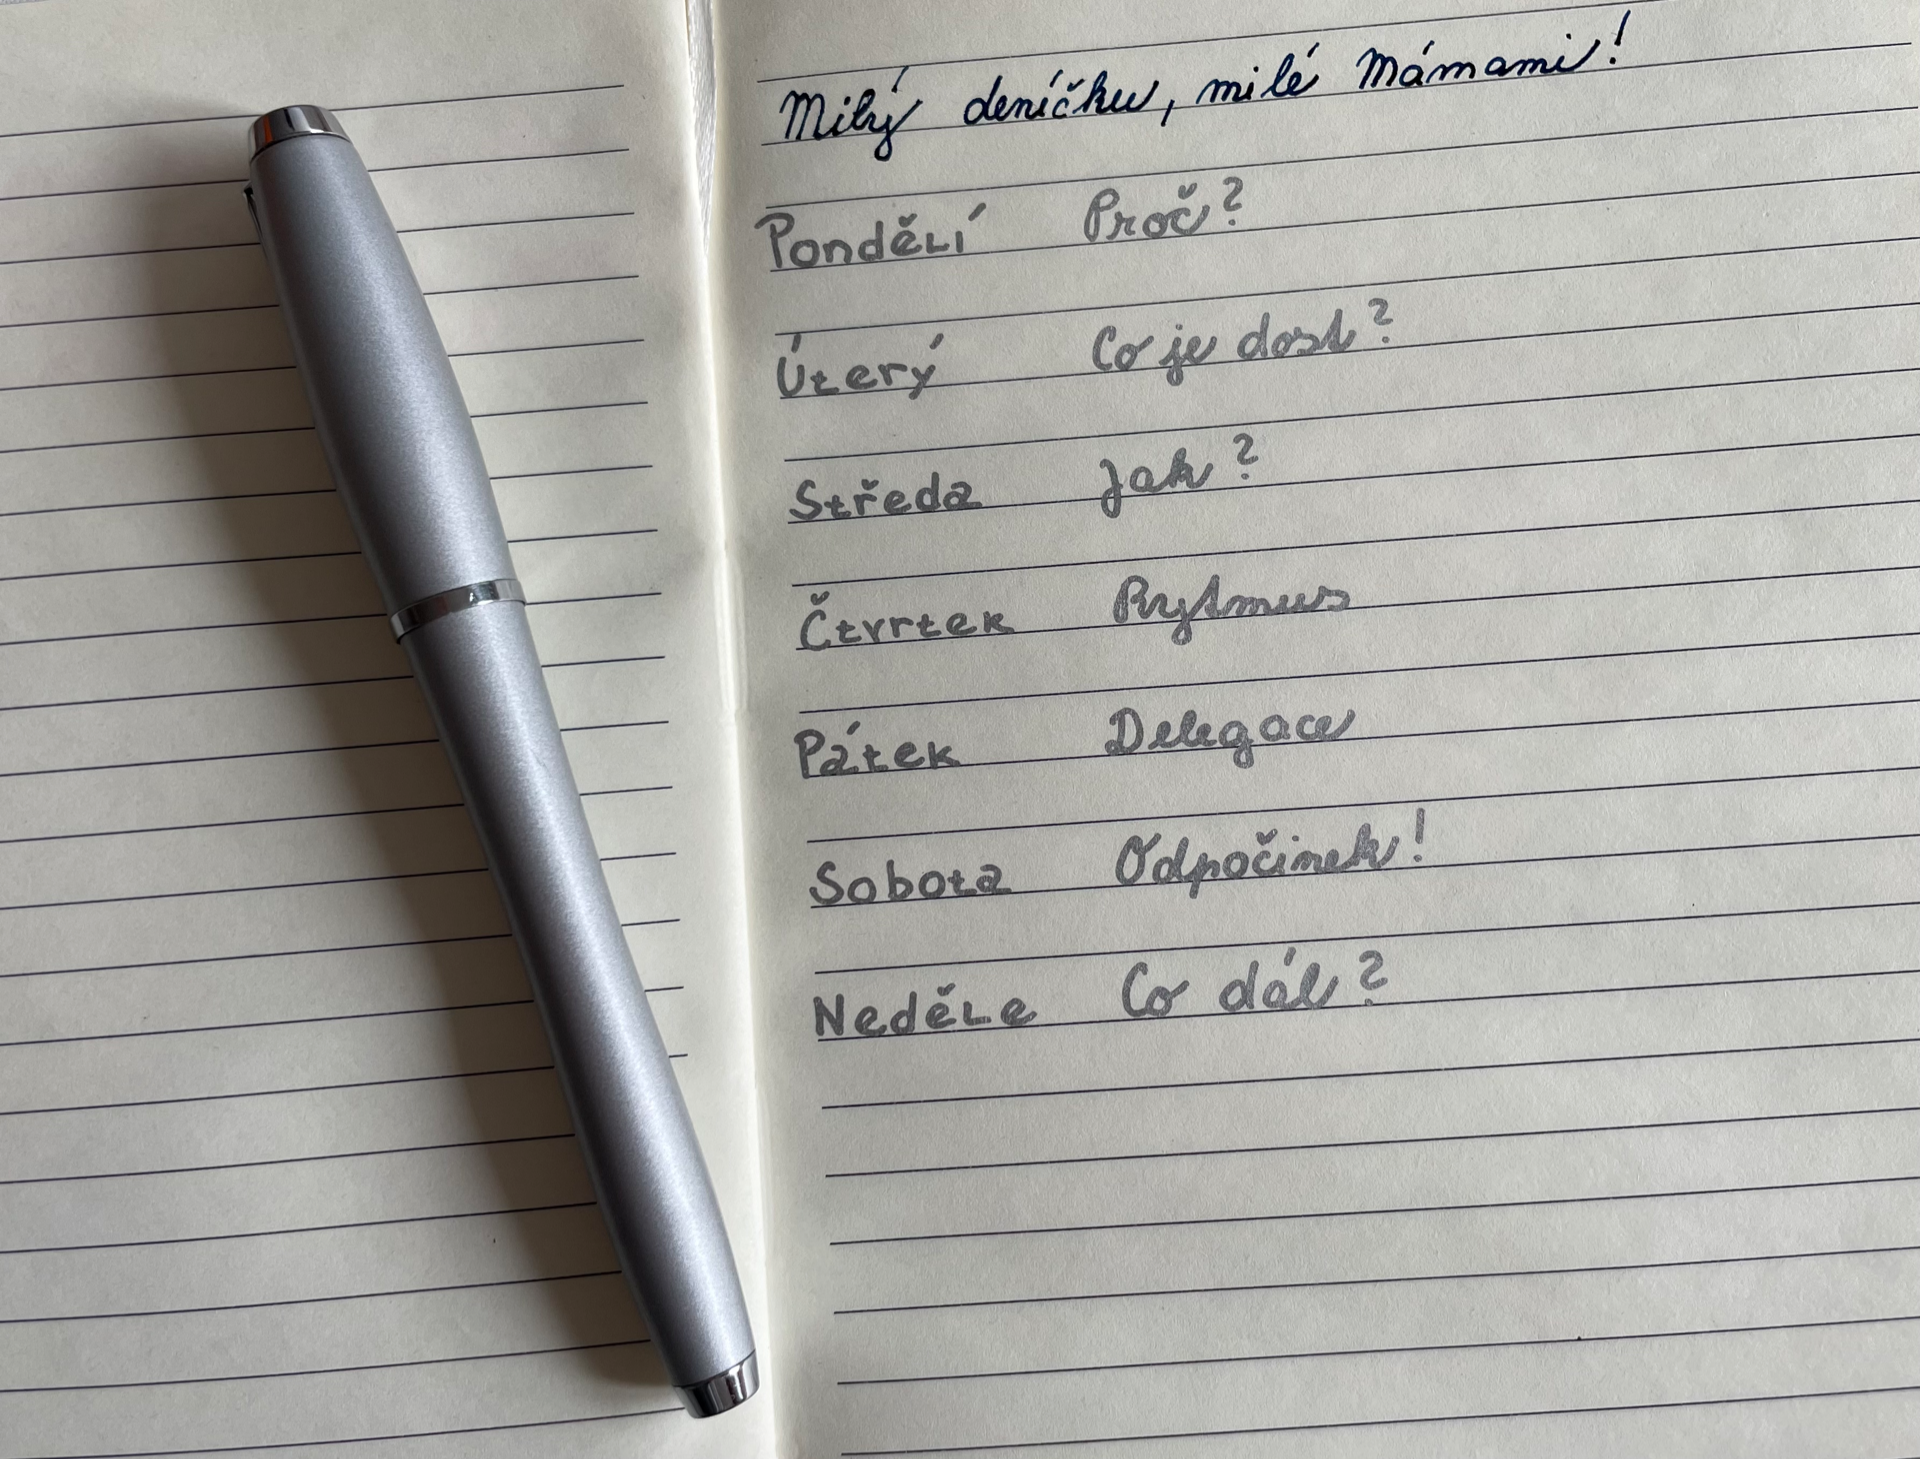 Milý deníčku, milé Mámami!
Pondělí Proč?
Úterý Co je dost?
Středa Jak?
Čtvrtek Rytmus
Pátek Delegace
Sobota Odpočinek!
Neděle Co dál?